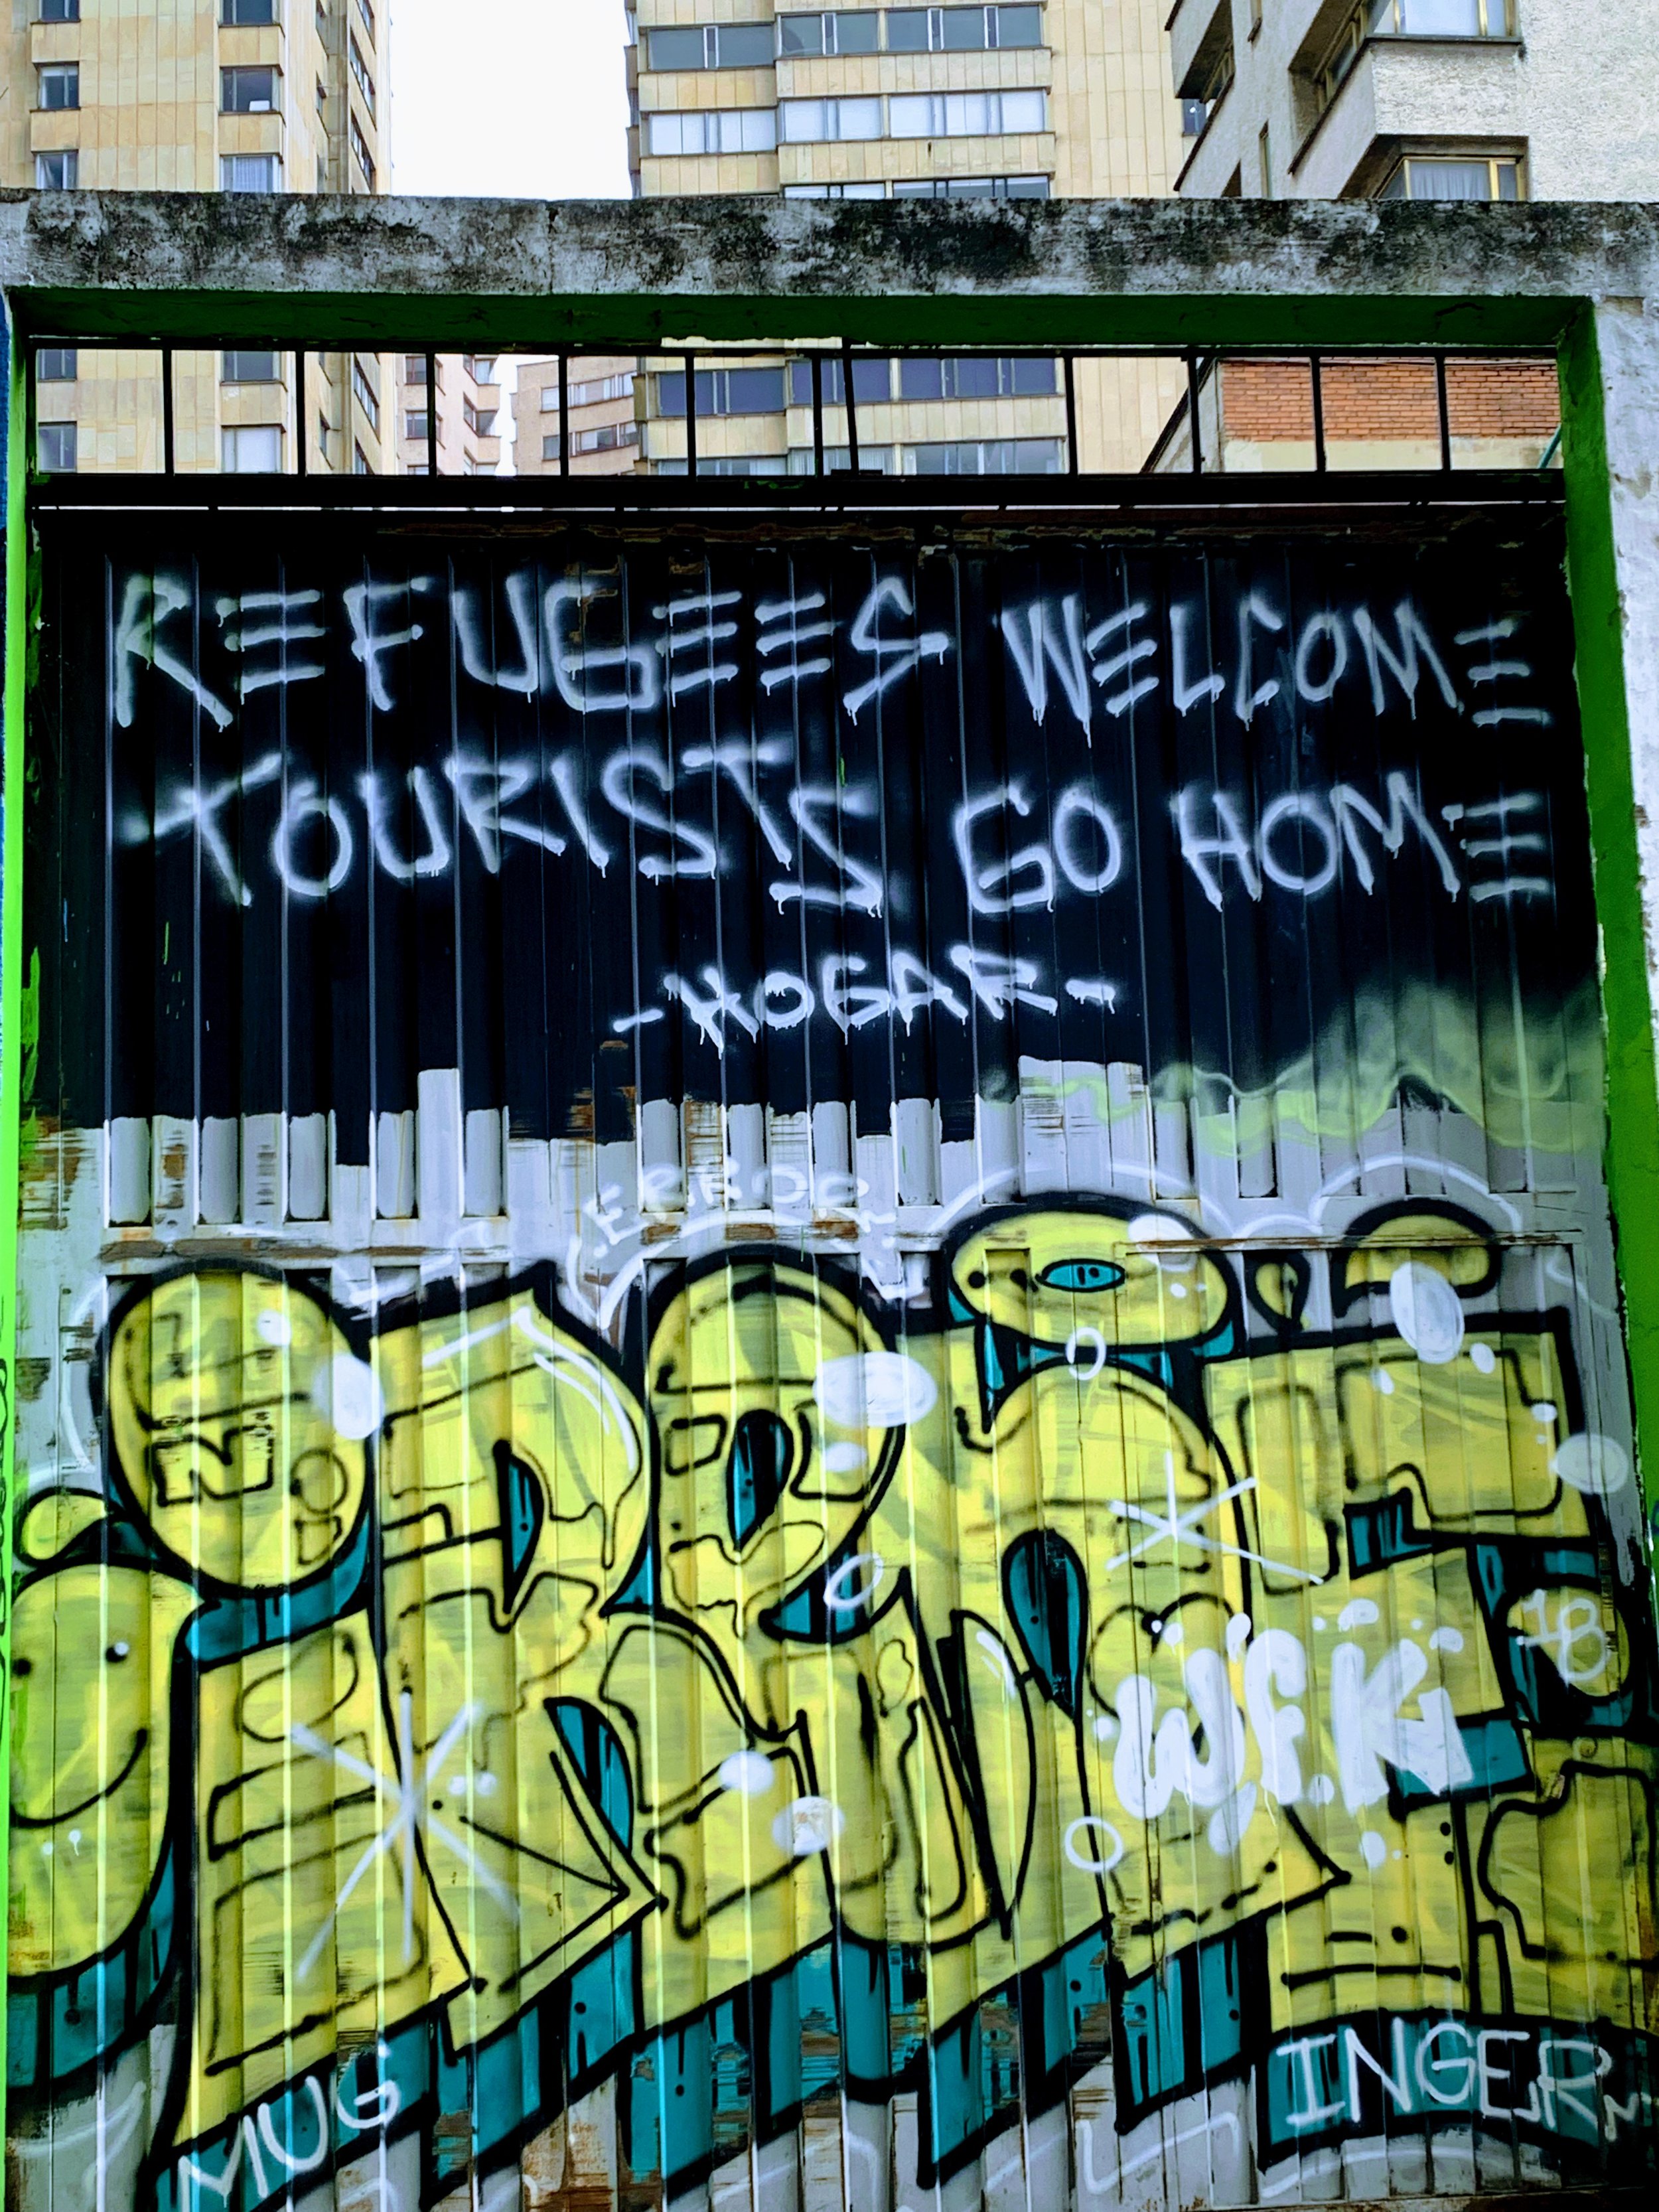 REFUGEES WELCOME
TOURISTS GO HOME
-HOGAR-
ERROR
W.F.K
18
MUG
INGER